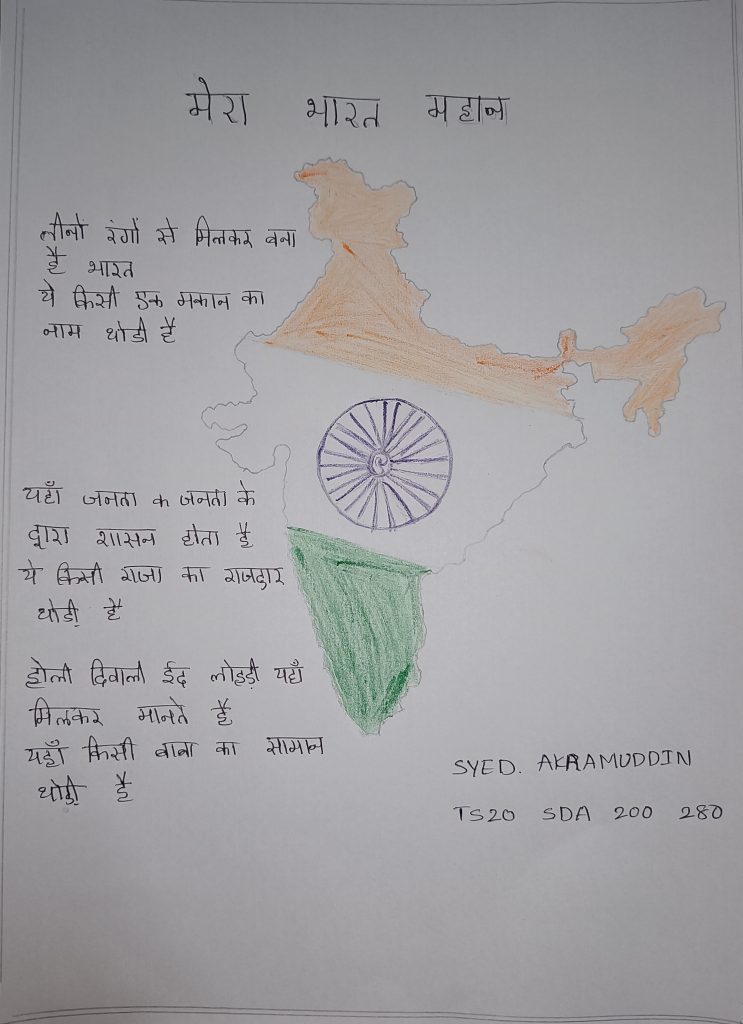 मेरा भारत महान
तीनों रंगों से मिलकर बना
है भारत
ये किसी एक मकान का
नाम थोडी है
यहाँ जनता क जनता के
द्वारा शासन होता है
ये किसी राजा का राजद्वार
थोडी़ है
होली दिवाली ईद लोहड़ी यहाँ
मिलकर मानते है
यहाँ किसी बाबा का सामान
थोडी़ है
SYED. AKRAMUDDIN
TS20 SDA 200 280